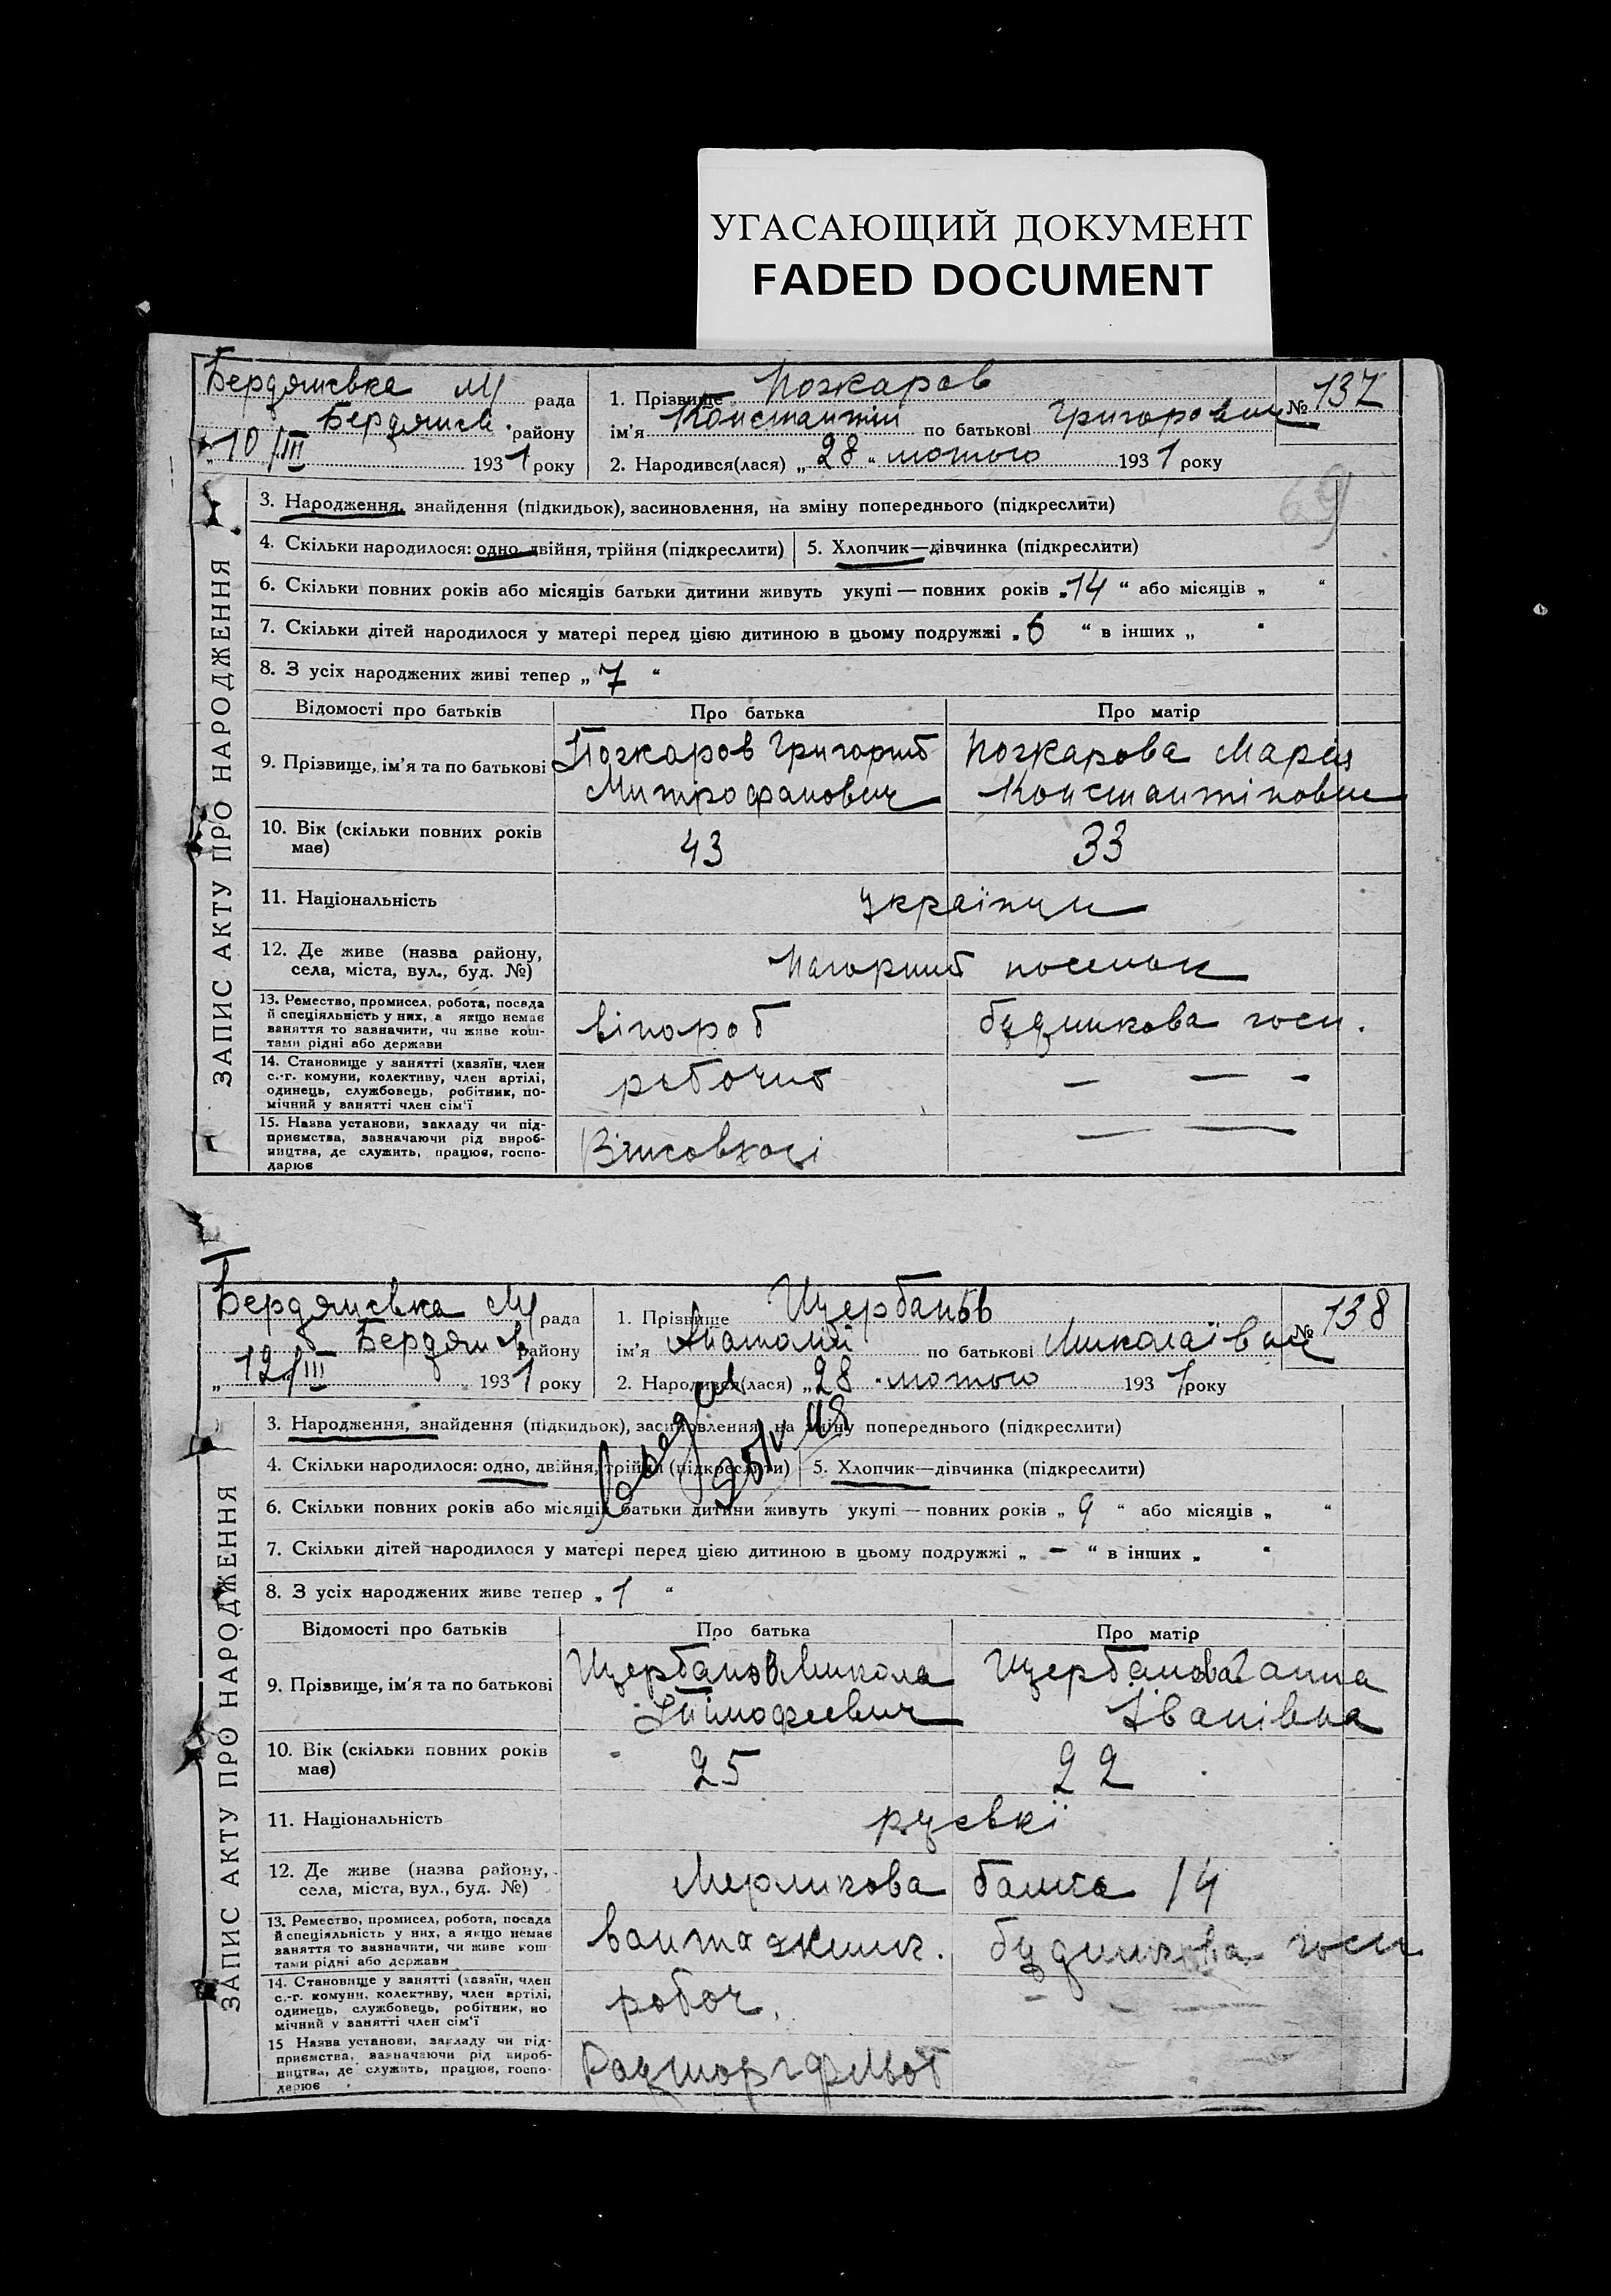 УГАСАЮЩИЙ ДОКУМЕНТ
FADED DOCUMENT
Бердянська М рада
Бердянськ. району
"10/III 1931 року
1. Прізвище Пожаров
№ 137
ім'я Константин по батькові Григорович
2. Народився(лася) „28" лютого 1931 року
69
ЗАПИС АКТУ ПРО НАРОДЖЕННЯ
3. Народження, знайдення (підкидьок), засиновлення, на зміну попереднього (підкреслити)
4. Скільки народилося: одно, двійня, трійня (підкреслити) 5. Хлопчик—дівчинка (підкреслити)
6. Скільки повних років або місяців батьки дитини живуть укупі — повних років „14" або місяців „ "
7. Скільки дітей народилося у матері перед цією дитиною в цьому подружжі „6" в інших „ "
8. З усіх народжених живі тепер „7"
Відомості про батьків Про батька Про матір
9. Прізвище, ім'я та по батькові
Пожаров Григорий
Митрофанович
Пожарова Марія
Константіновн
10. Вік (скільки повних років
має)
43 33
11. Національність українци
12. Де живе (назва району,
села, міста, вул., буд. №)
Нагорний поселок
13. Ремество, промисел, робота, посада
й спеціяльність у них, а якщо немає
заняття то зазначити, чи живе кош-
тами рідні або держави
вінороб будинкова госп.
14. Становище у занятті (хазяїн, член
с.-г. комуни, колективу, член артілі,
одинець, службовець, робітник, по-
мічний у занятті член сім'ї
рабочий — — -
15. Назва установи, закладу чи під-
приємства, зазначаючи рід вироб-
ництва, де служить, працює, госпо-
дарює
— —
Бердянська М рада
Бердянськ району
„12/III 1931 року
1. Прізвище Щербаньов
№ 138
ім'я Анатолій по батькові Миколаївич
2. Народився(лася) „28" лютого 1931 року
ЗАПИС АКТУ ПРО НАРОДЖЕННЯ
3. Народження, знайдення (підкидьок), засиновлення, на зміну попереднього (підкреслити)
4. Скільки народилося: одно, двійня, трійня (підкреслити) 5. Хлопчик—дівчинка (підкреслити)
6. Скільки повних років або місяців батьки дитини живуть укупі — повних років „9" або місяців „ "
7. Скільки дітей народилося у матері перед цією дитиною в цьому подружжі „-" в інших „ "
8. З усіх народжених живе тепер „1"
Відомості про батьків Про батька Про матір
9. Прізвище, ім'я та по батькові
Щербаньов Микола
Тімофеевич
Щербаньова Ганна
Іванівна
10. Вік (скільки повних років
має)
25 22
11. Національність руські
12. Де живе (назва району,
села, міста, вул., буд. №)
Мерликова балка 14
13. Ремество, промисел, робота, посада
й спеціяльність у них, а якщо немає
заняття то зазначити, чи живе кош
тами рідні або держави
вантажник. будинкова госп
14. Становище у занятті (хазяїн, член
с.-г. комуни, колективу, член артілі,
одинець, службовець, робітник, по
мічний у занятті член сім'ї
робоч.
15 Назва установи, закладу чи під-
приємства, зазначаючи рід вироб-
ництва, де служить, працює, госпо-
дарює
Радторгфльот